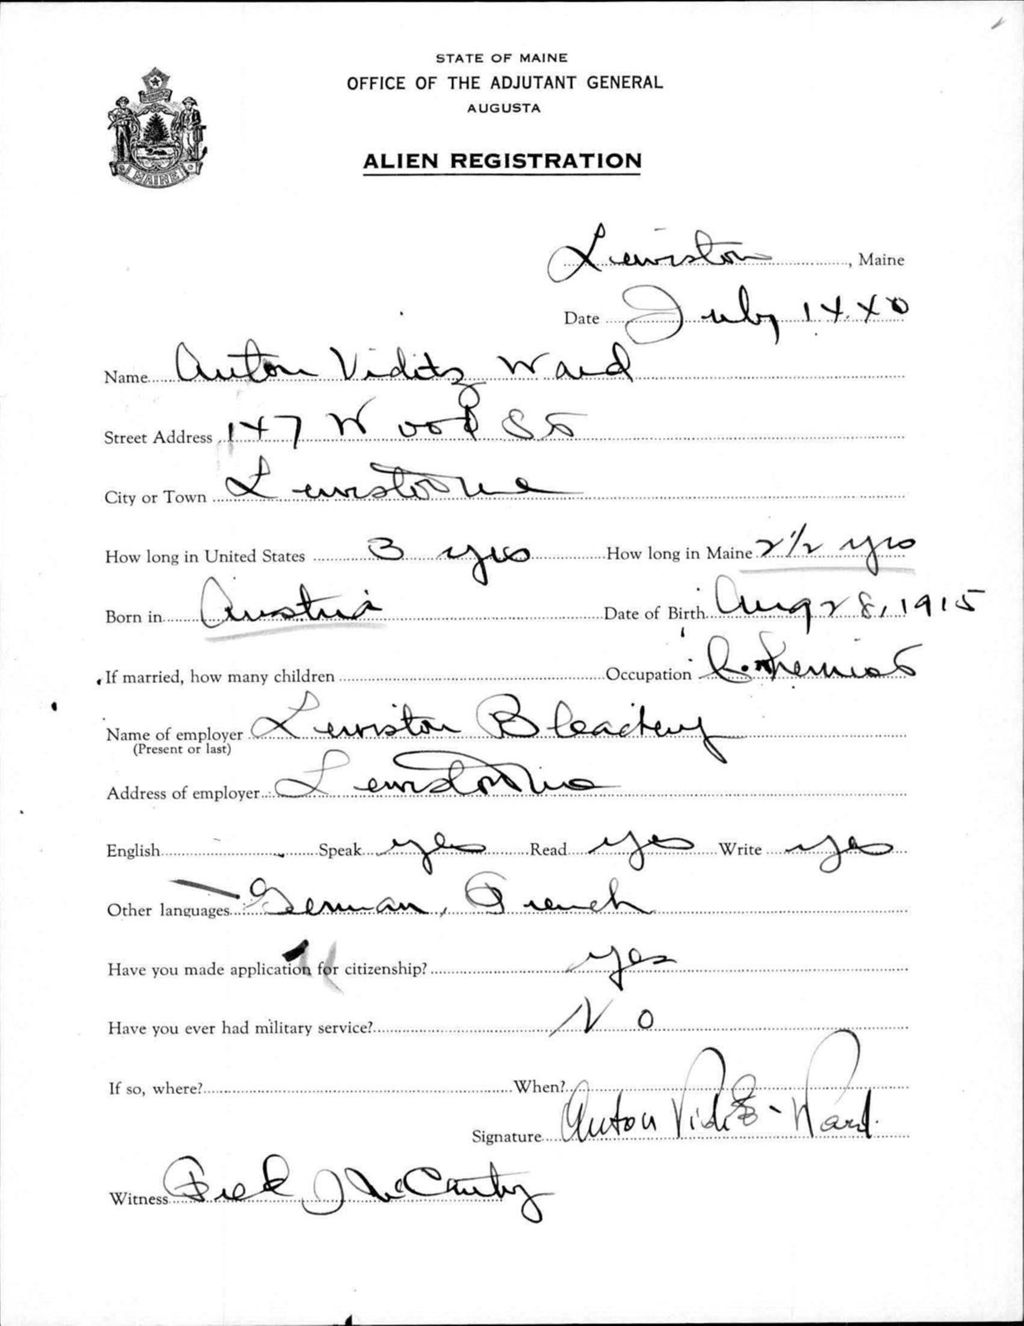 STATE OF MAINE
OFFICE OF THE ADJUTANT GENERAL
AUGUSTA
ALIEN REGISTRATION
MAINE
Lewiston, Maine
Date July 14. 40
Name Anton Viditz Ward
Street Address 147 Wood St
City or Town Lewiston Me
How long in United States 3 yrs How long in Maine 2 1/2 yrs
Born in Austria Date of Birth Aug 28, 1915
If married, how many children Occupation Chemist
Name of employer Lewiston Bleachery
(Present or last)
Address of employer Lewiston Me
English Speak yes Read yes Write yes
Other languages German, French
Have you made application for citizenship? yes
Have you ever had military service? No
If so, where? When?
Signature Anton Viditz-Ward.
Witness Fred J McCarthy